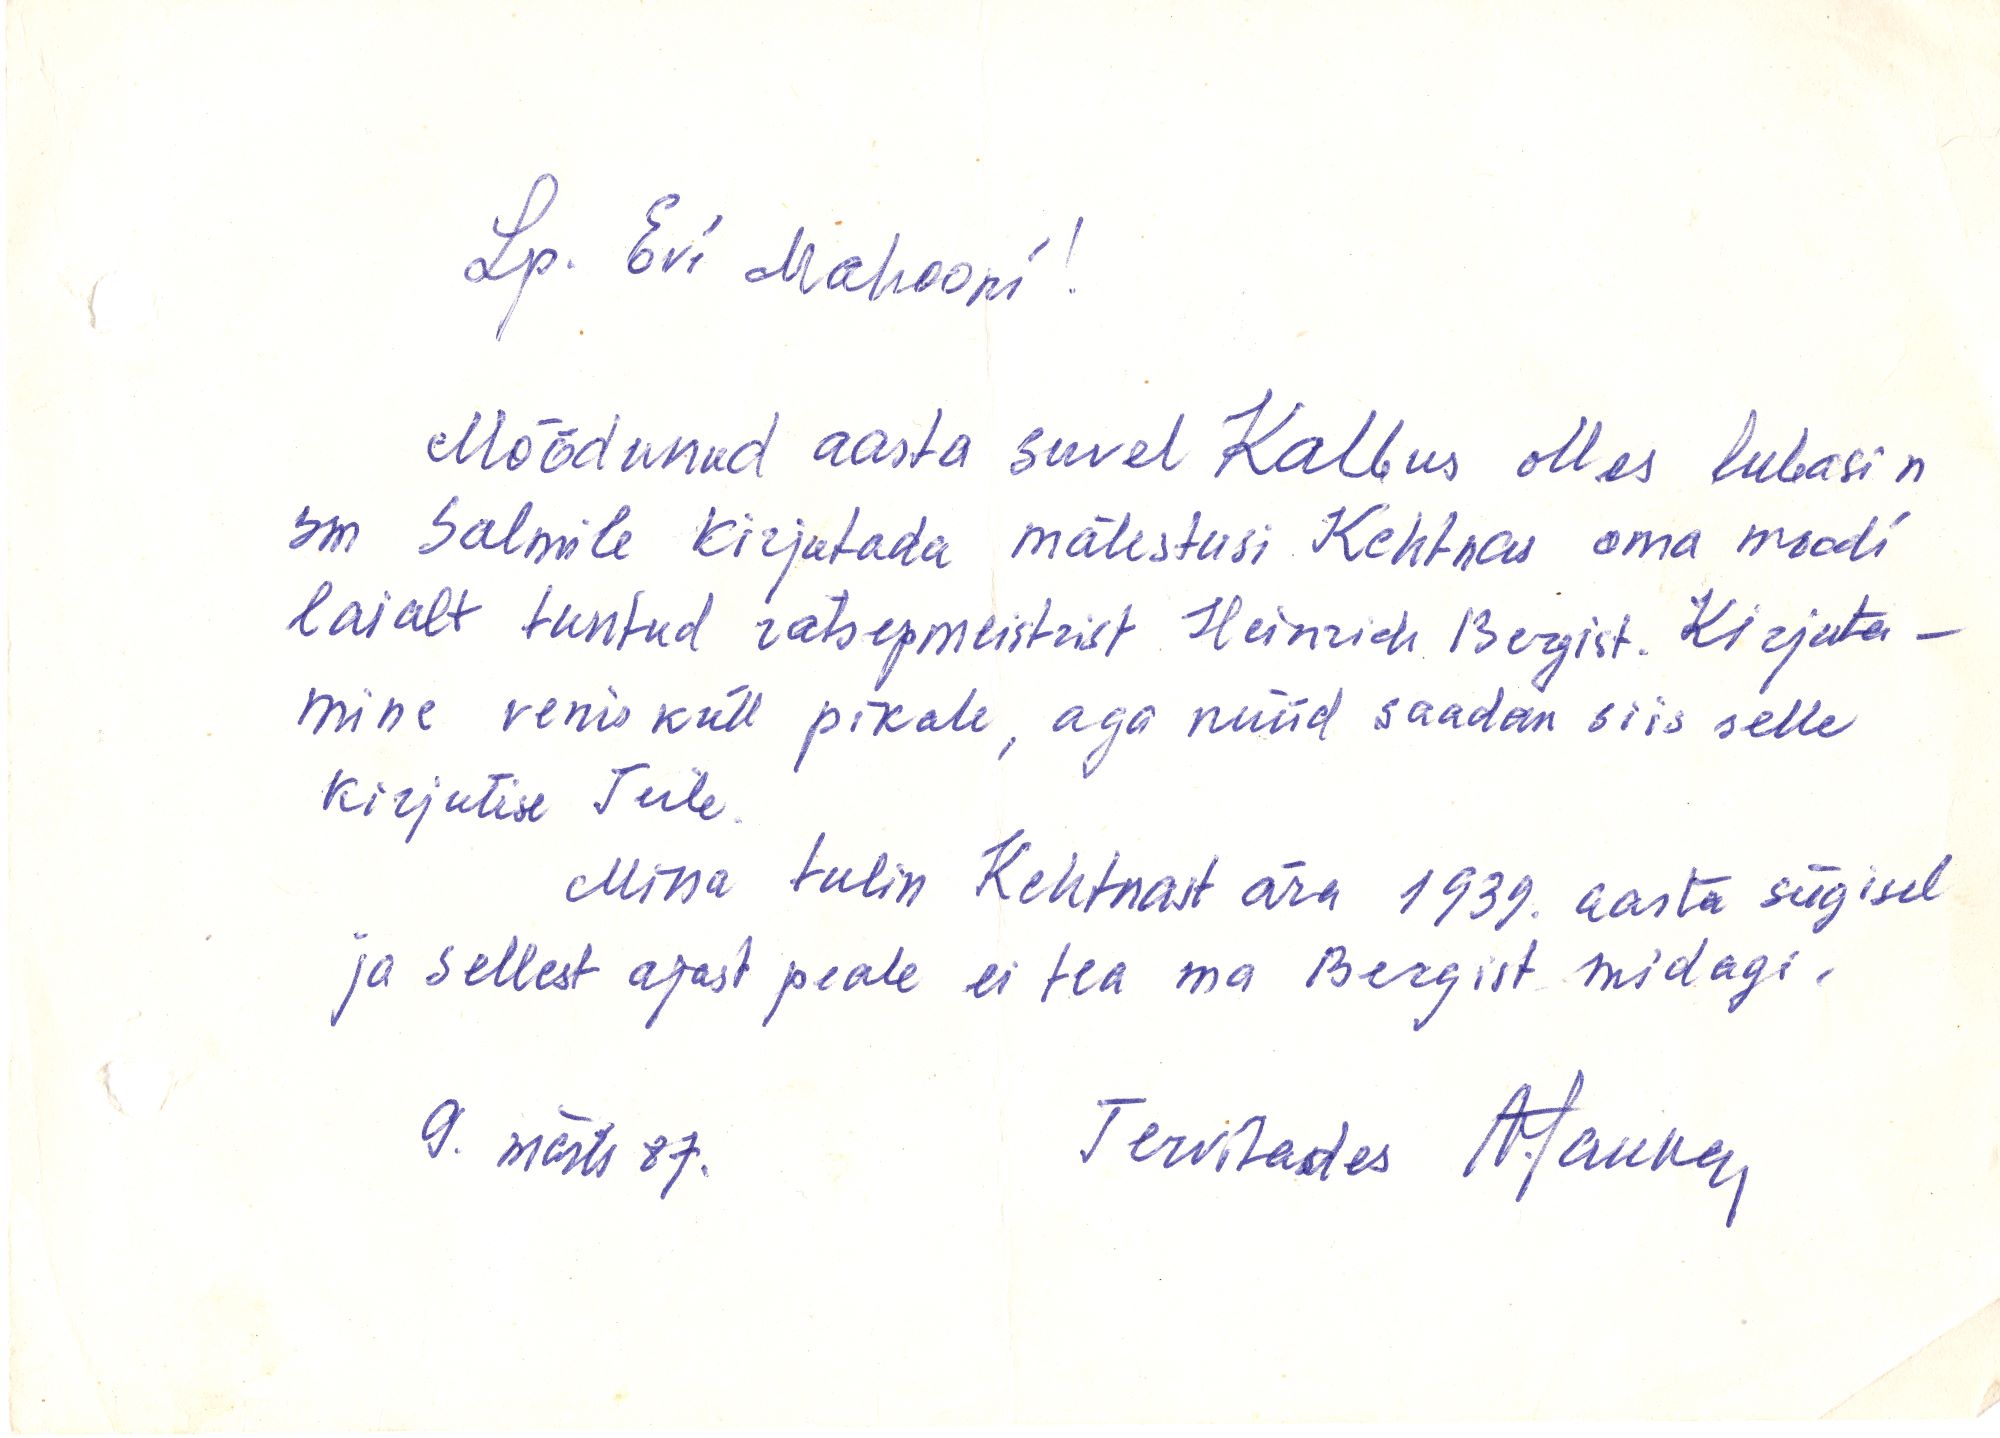 Lp. Evi Mahooni!
Möödunud aasta suvel Kalbus olles lubasin
sm Salmile kirjutada mälestusi Kehtnas oma moodi
laialt tuntud rätsepmeistrist Heinrich Bergist. Kirjuta-
mine venis küll pikale, aga nüüd saadan siis selle
kirjutise Teile.
Mina tulin Kehtnast ära 1939. aasta sügisel
ja sellest ajast peale ei tea ma Bergist midagi.
9. märts 87.
Tervitades